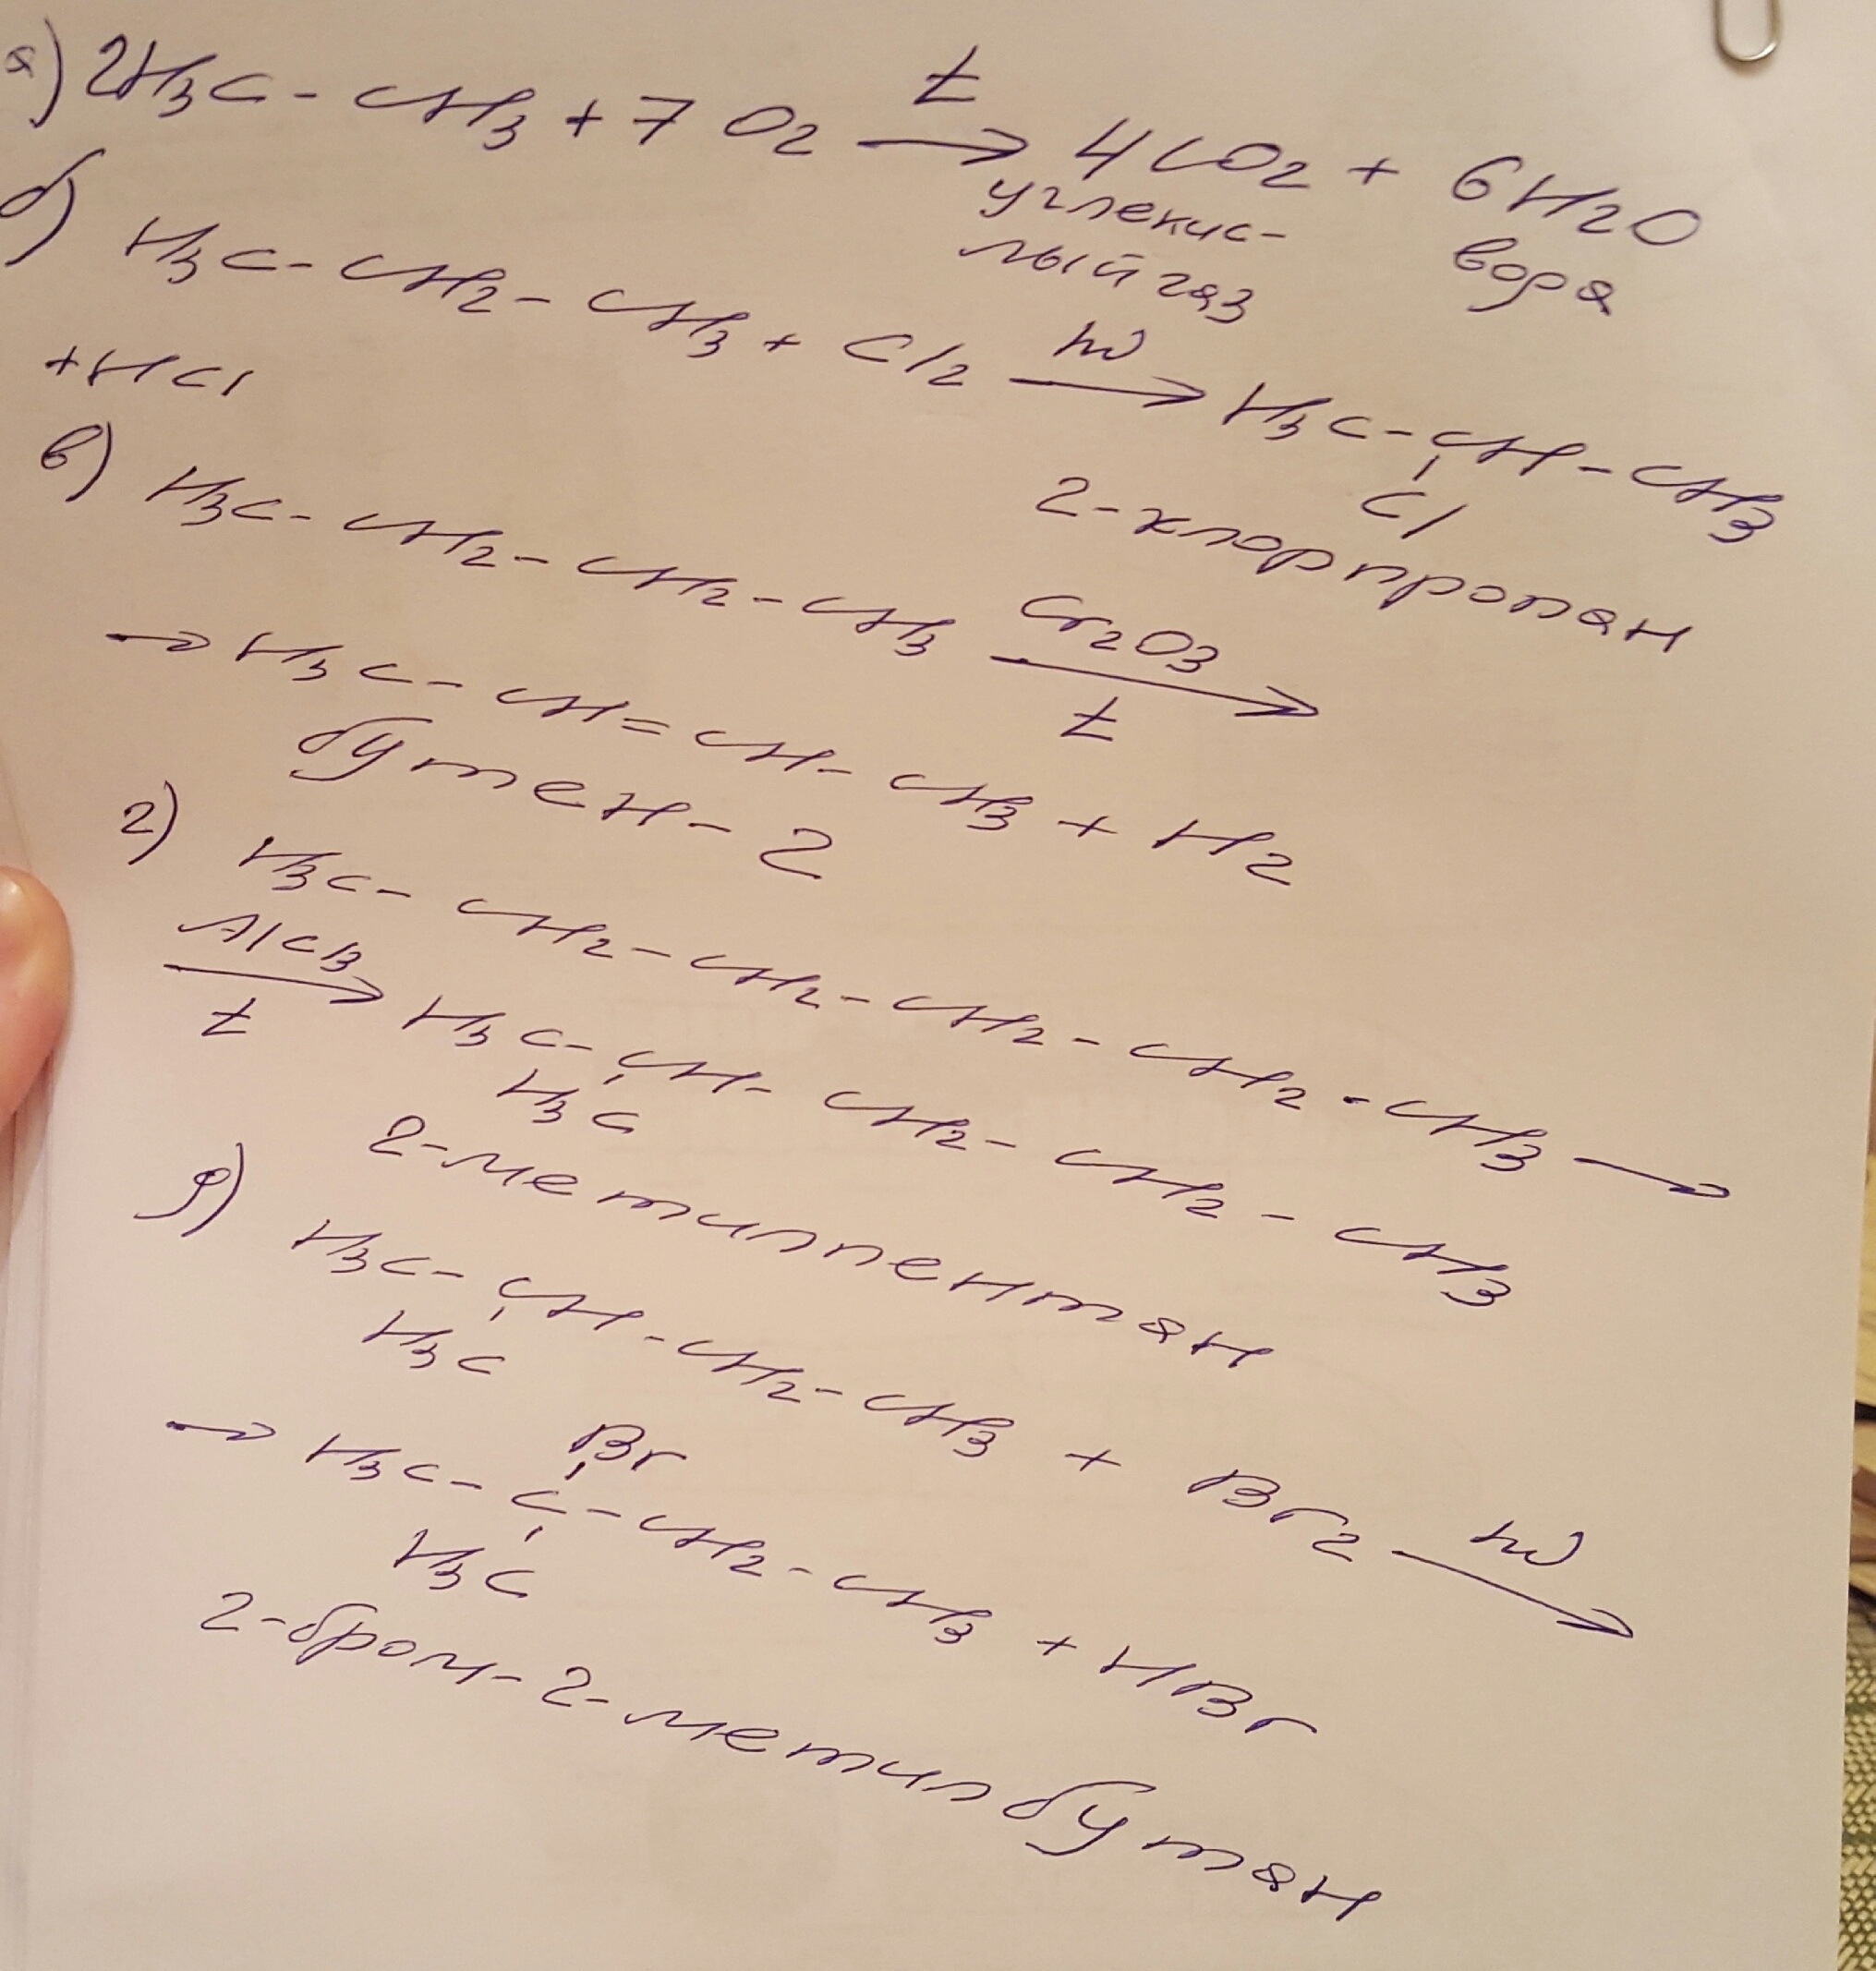 а) 2H3C - CH3 + 7 O2 t→ 4CO2 + 6H2O
углекис-
лый газ вода
б) H3C - CH2 - CH3 + Cl2 hν→ H3C - CH - CH3
Cl
+ HCl
2-хлорпропан
в) H3C - CH2 - CH2 - CH3 Cr2O3→
t
→ H3C - CH = CH - CH3 + H2
бутен-2
г) H3C - CH2 - CH2 - CH2 - CH2 - CH3 →
AlCl3→ H3C - CH - CH2 - CH2 - CH3
t H3C
2-метилпентан
д) H3C - CH - CH2 - CH3 + Br2 hν→
H3C
Br
→ H3C - C - CH2 - CH3 + HBr
H3C
2-бром-2-метилбутан